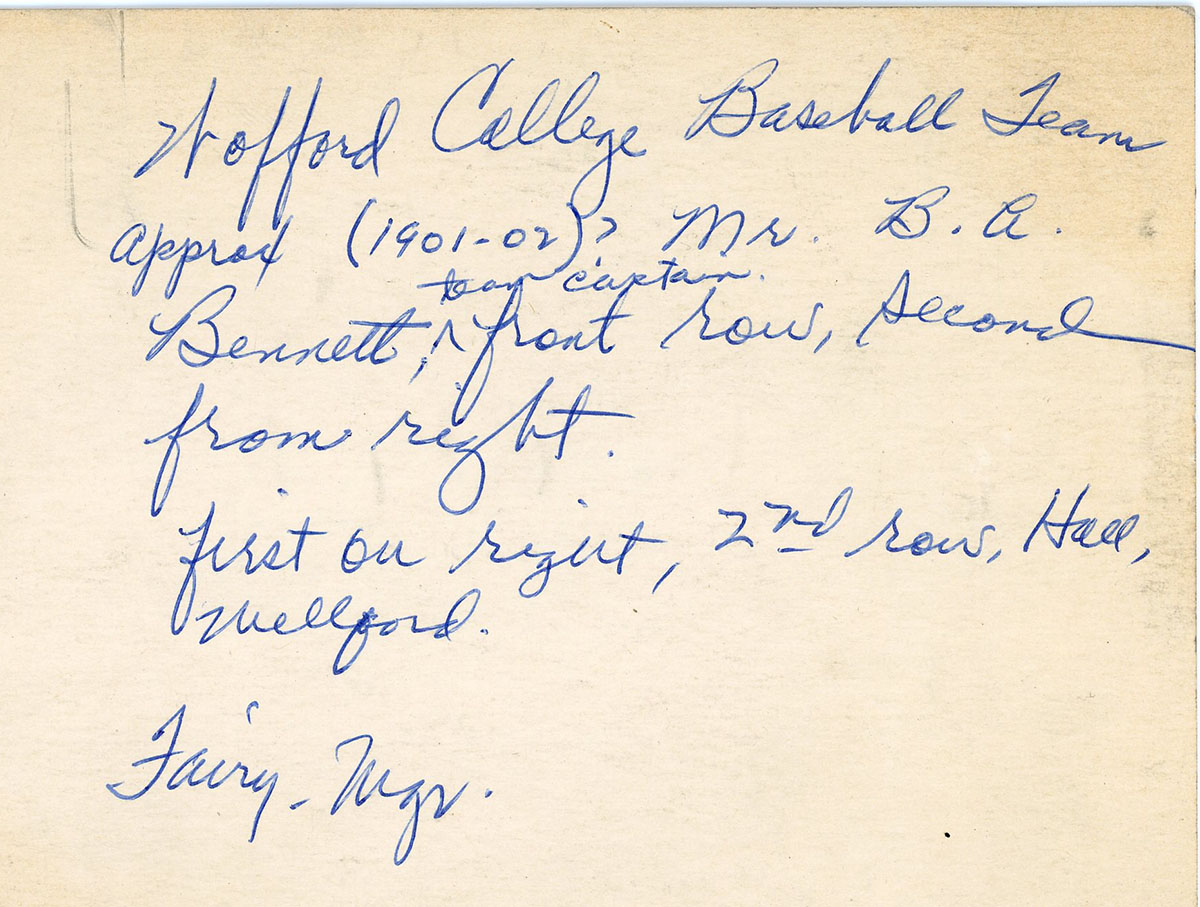 Wofford College Baseball Team
approx (1901-02)? Mr. B. A.
team captain.
Bennett, ^ front row, second
from right.
First on right, 2nd row, Hall,
Wellford.
Fairy - Mgr.